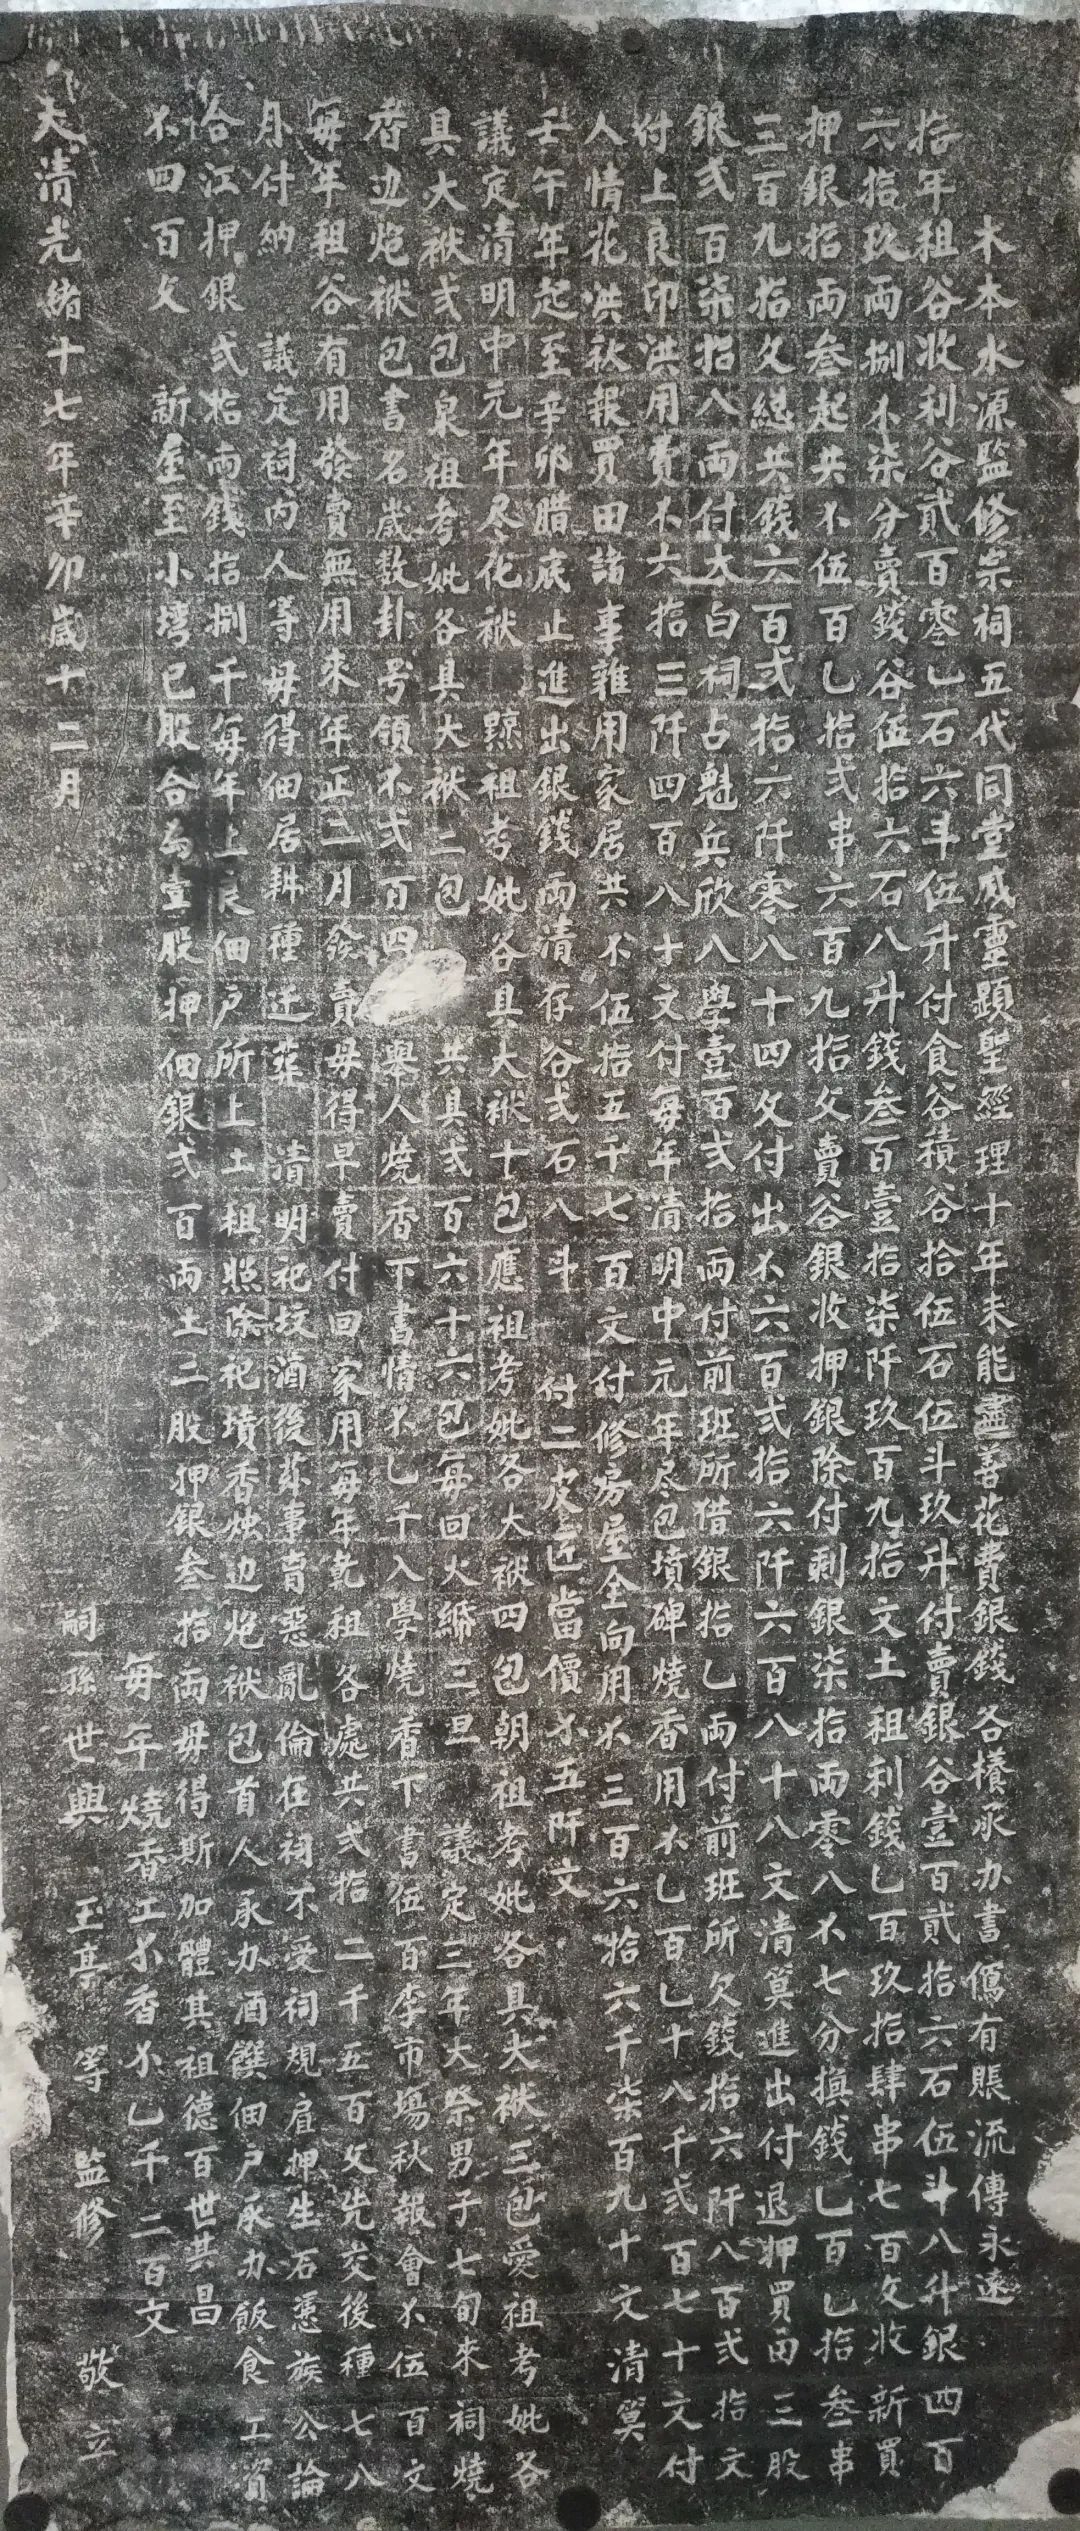 木本水源監修宗祠五代同堂威靈顕聖經理十年未能盡善花費銀錢各樣承办書傌有賬流傳永遠
拾年租谷收利谷貳百零乙石六斗伍升付食谷積谷拾伍石伍斗玖升付賣銀谷壹百貳拾六石伍斗八升銀四百
六拾玖両捌不柒分賣錢谷伍拾六石八升錢叁百壹拾柒阡玖百九拾文土租利錢乙百玖拾肆串七百文收新買
押銀拾両叁起共不伍百乙拾弍串六百九拾文賣谷銀收押銀除付剩銀柒拾両零八不七分摃錢乙百乙拾叁串
三百九拾文總共錢六百弍拾六阡零八十四文付出不六百弍拾六阡六百八十八文清筭進出付退押買田三股
銀弍百柒拾八両付大白祠占魁兵欣入學壹百弍拾両付前班所借銀拾乙両付前班所欠錢拾六阡八百弍拾文
付上良印洪用費不六拾三阡四百八十文付每年清明中元年尽包墳碑燒香用不乙百乙十八千弍百七十文付
人情花洪秋報買田諸事雜用家居共不伍拾五千七百文付修房屋全向用不三百六拾六千柒百九十文 清筭
壬午年起至辛卯腊底止進出銀錢両清存谷弍石八斗 付二皮匠當價不五阡文
議定清明中元年尽花袱 䠶祖考妣各具大袱十包應祖考妣各大袱四包朝祖考妣各具大袱三包愛祖考妣各
具大袱弍包泉祖考妣各具大袱二包 共具弍百六十六包每回火緉三旦 議定三年大祭男子七旬來祠燒
香边炮袱包書名歲数卦号領不弍百四 舉人燒香下書情不乙千入學燒香下書伍百李市塲秋報會不伍百文
每年租谷有用發賣無用來年正二月發賣毋得早賣付回家用每年乾租各處共弍拾二千五百文先交後種七八
月付納 議定祠內人等毋得佃居耕種迯葬 清明祀坟酒後茲事肯惡亂倫在祠不愛祠規眉押生石憑族公論
合江押銀弍拾両錢拾捌千每年上良佃户所上土租照除祀墳香烛边炮袱包首人承办酒饌佃户承办飯食工資
不四百文 新屋至小塆已股合为壹股押佃銀弍百両土二股押銀叁拾両毋得斯加體其祖德百世其昌
每年燒香工不香不乙千二百文
大清光緒十七年辛卯歲十二月 嗣孫世興 玉亭 等 監修 敬立